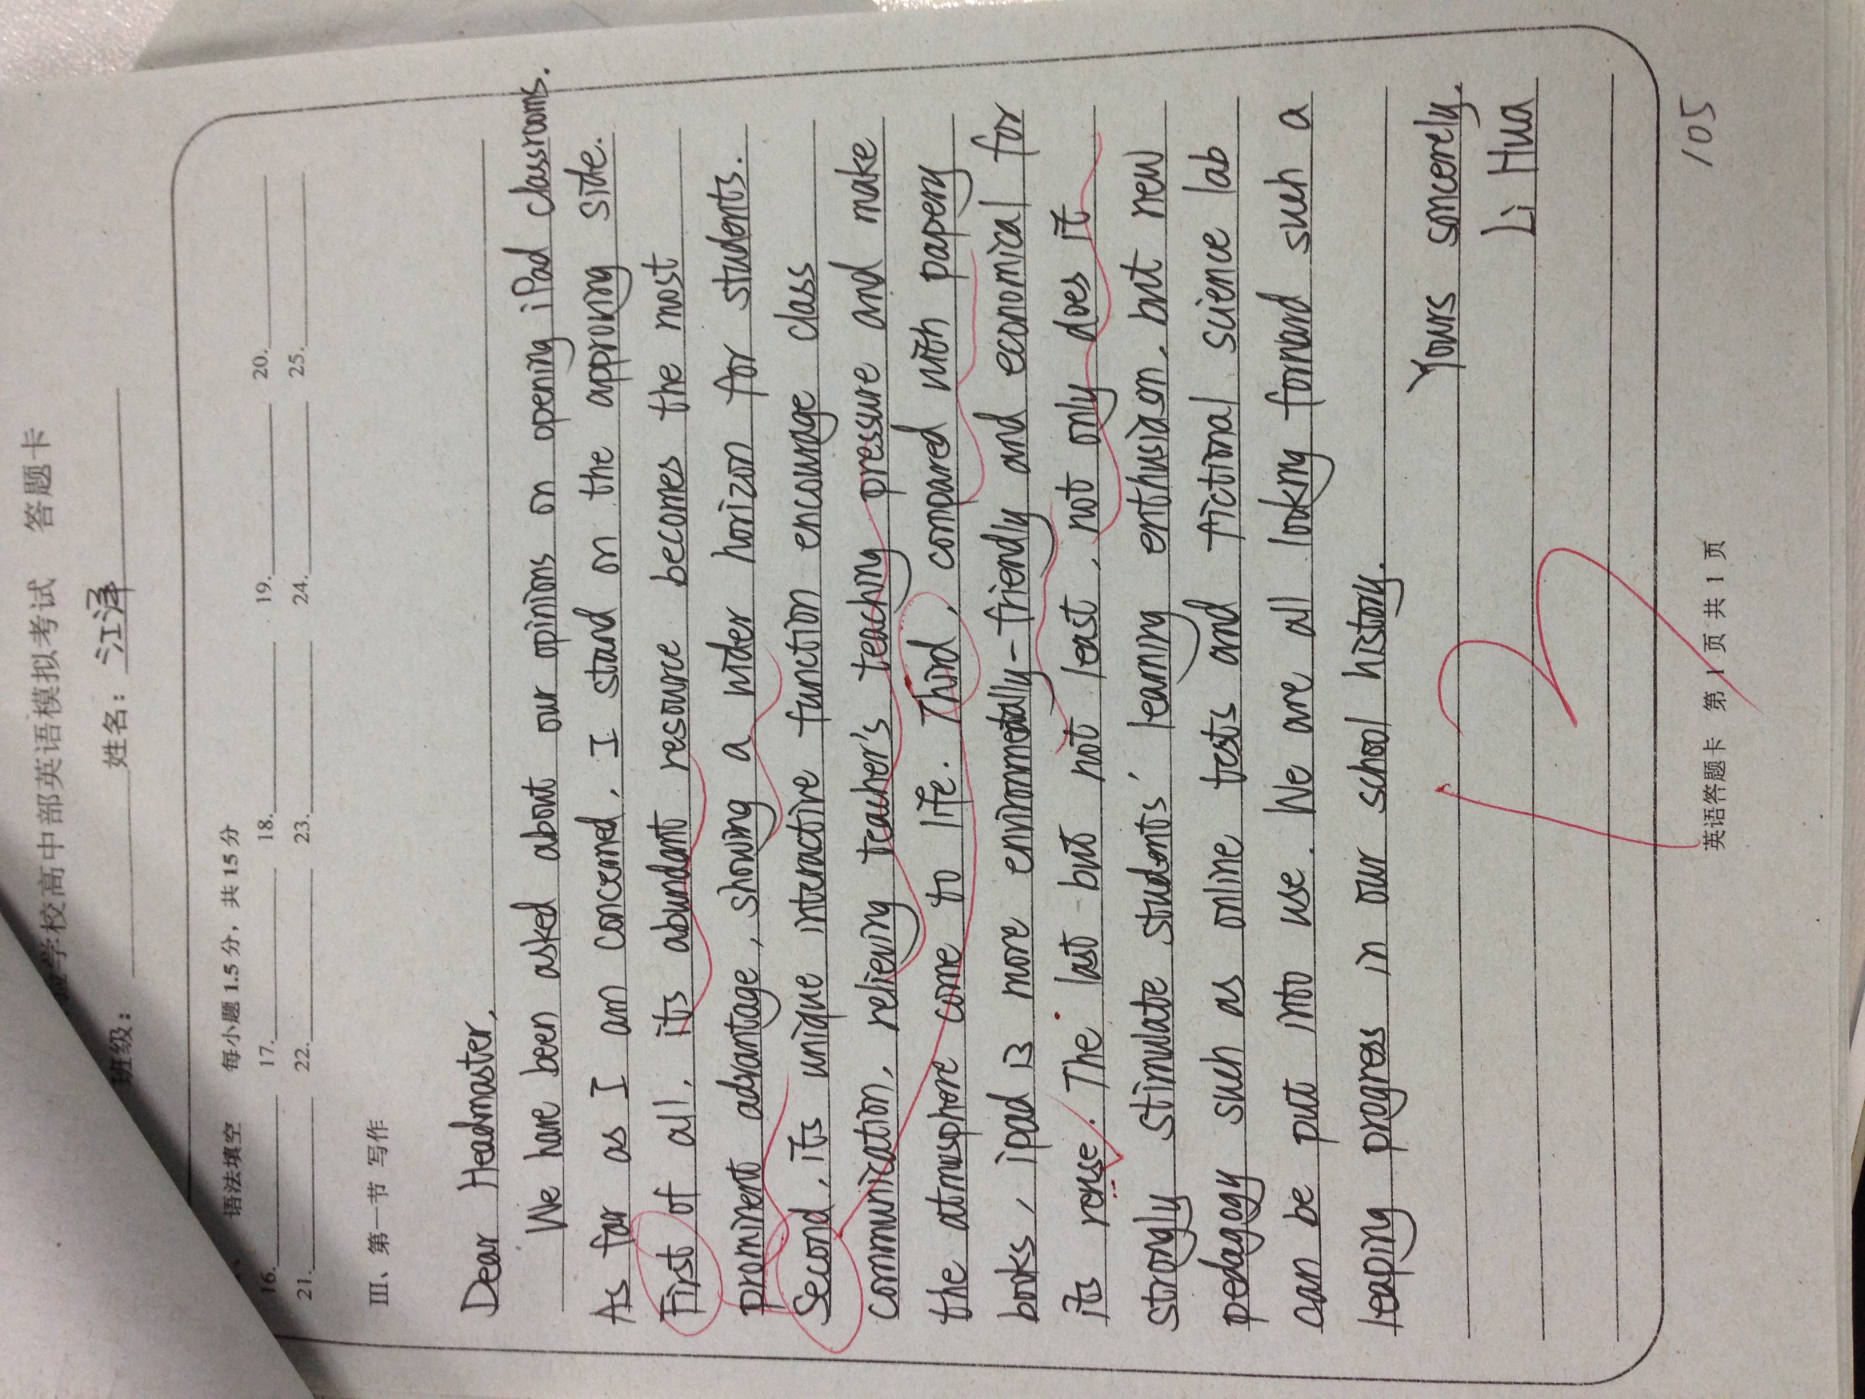 学校高中部英语模拟考试 答题卡
班级： 姓名：江泽
语法填空 每小题 1.5 分，共 15 分
16. 17. 18. 19. 20.
21. 22. 23. 24. 25.
III、第一节 写作
Dear Headmaster,
We have been asked about our opinions on opening iPad classrooms.
As far as I am concerned, I stand on the approving side.
First of all, its abundant resource becomes the most
prominent advantage, showing a wider horizon for students.
Second, its unique interactive function encourage class
communication, relieving teacher's teaching pressure and make
the atmosphere come to life. Third, compared with papery
books, ipad is more environmentally-friendly and economical for
its reuse. The last but not least, not only does it
strongly stimulate students' learning enthusiasm, but new
pedagogy such as online tests and fictional science lab
can be put into use. We are all looking forward such a
leaping progress in our school history.
Yours sincerely,
Li Hua
12
105
英语答题卡 第 1 页 共 1 页